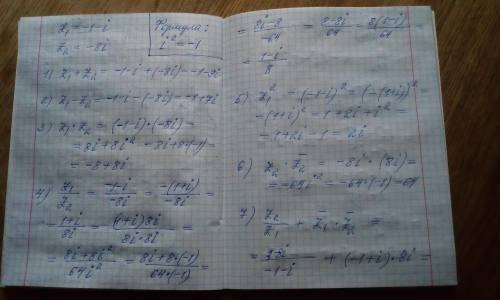 z₁ = -1-i
z₂ = -8i
Формула:
i² = -1
1) z₁ + z₂ = -1-i + (-8i) = -1-9i
2) z₁ - z₂ = -1-i - (-8i) = -1+7i
3) z₁ · z₂ = (-1-i) · (-8i) =
= 8i + 8i² = 8i + 8·(-1) =
= -8 + 8i
4) z₁/z₂ = (-1-i)/(-8i) = -(1+i)/(-8i) =
= (1+i)/(8i) = ((1+i)8i)/(8i·8i) =
= (8i+8i²)/(64i²) = (8i+8·(-1))/(64·(-1)) =
= (8i-8)/(-64) = (8-8i)/64 = 8(1-i)/64 =
= (1-i)/8
5) z₁² = (-1-i)² = (-(1+i))² =
-(1+i)² = 1+2i+i² =
= 1+2i-1 = 2i
6) z₂ · z̄₂ = -8i · (8i) =
= -64i² = -64·(-1) = 64
7) z₂/z₁ + z̄₁ · z̄₂ =
= /(-1-i) + (-1+i)·8i =